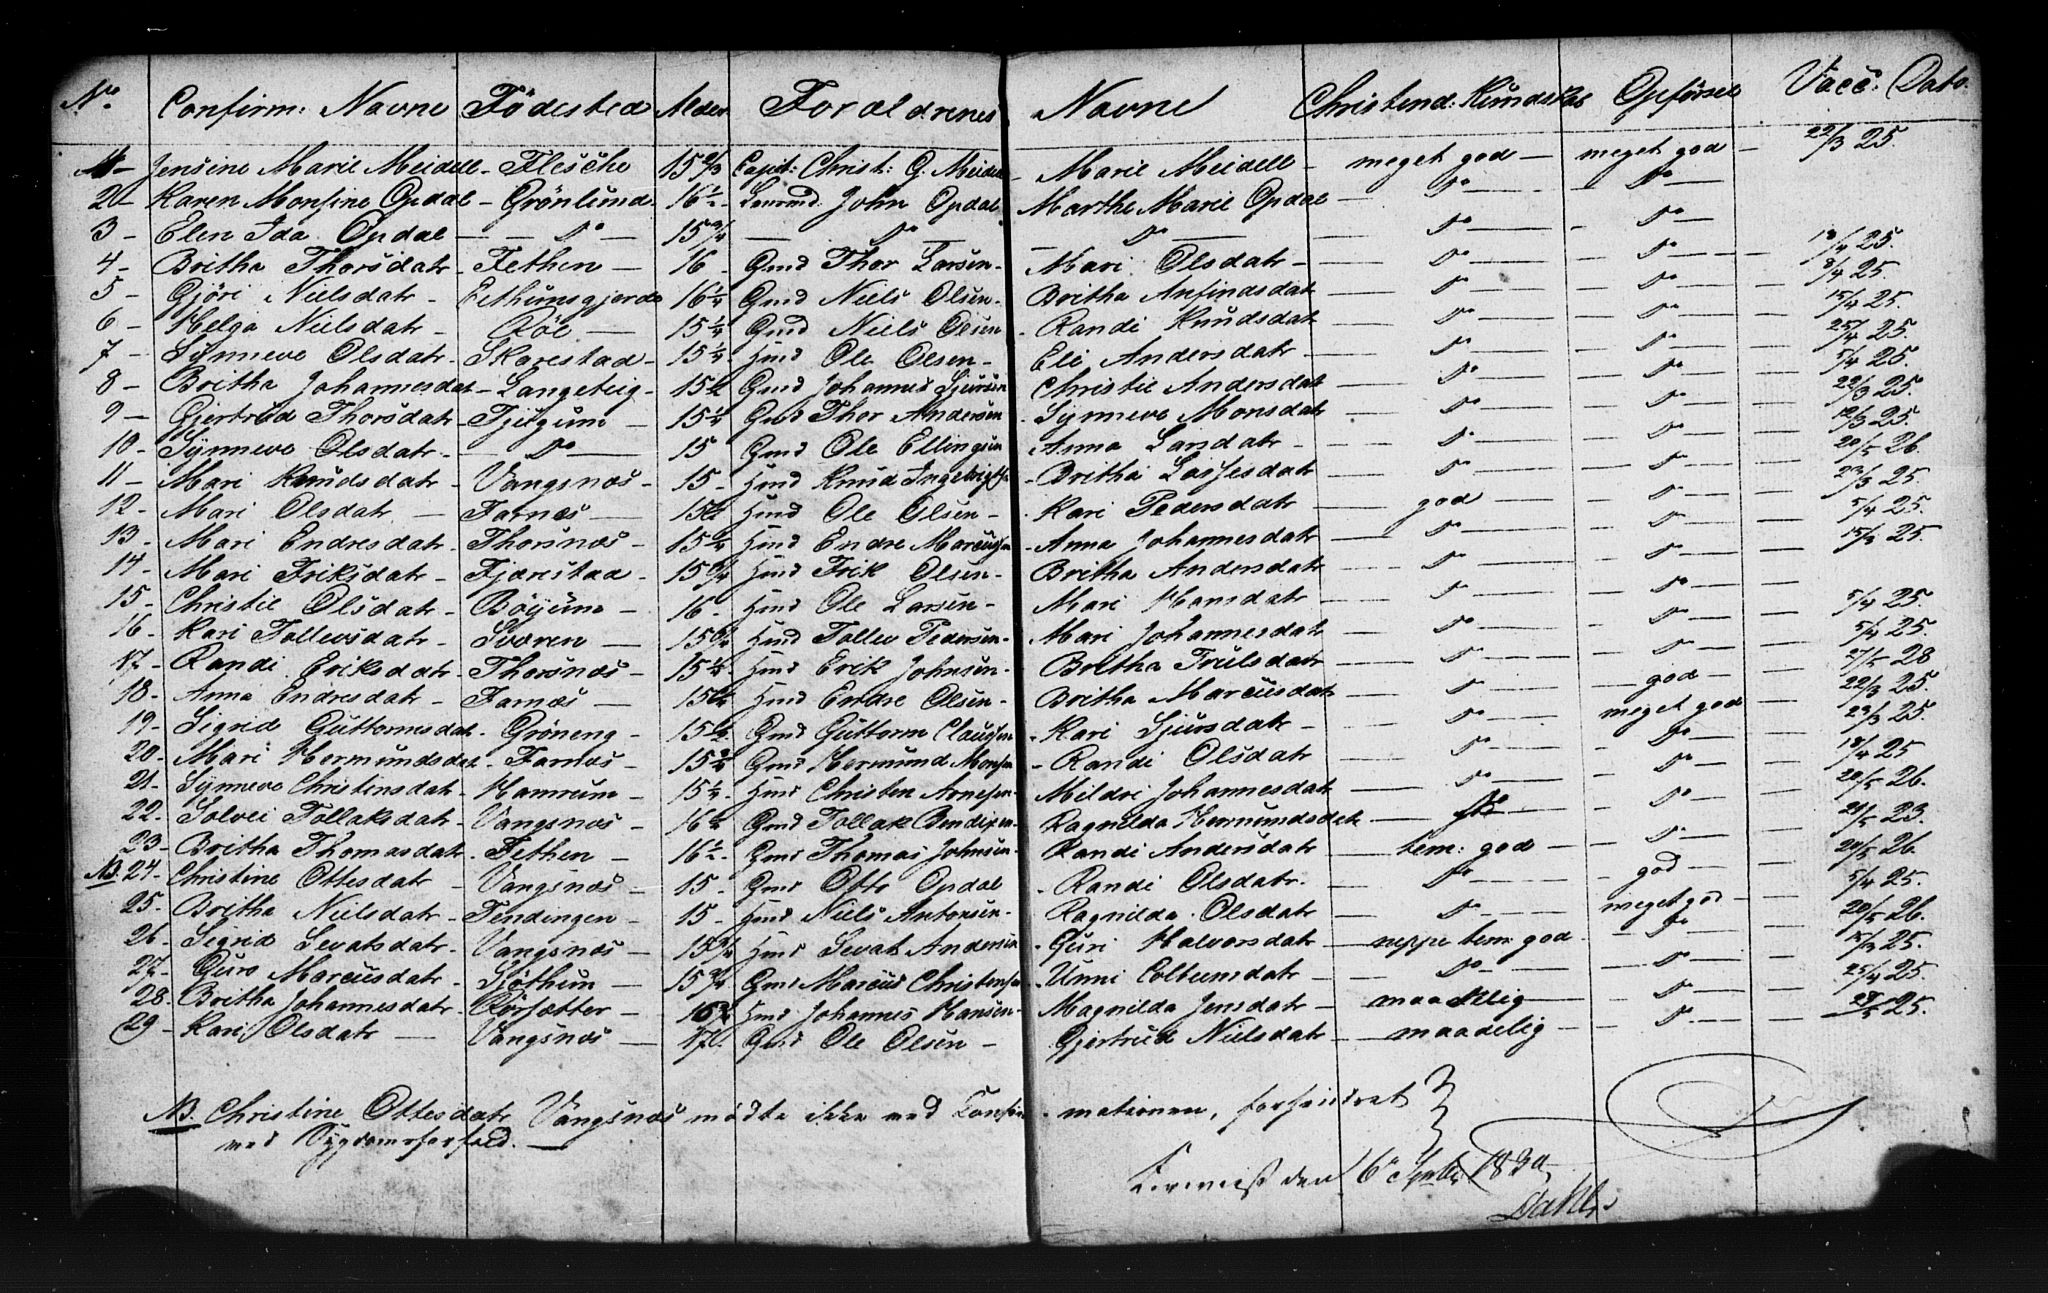 No. Confirm: Navne Födested Alder Forældrenes Navne Christend: Kundskab Opførsel Vacc: Dato.
1 - Jensine Marie Meidell - Flesche 15 2/3 Capit: Christ: G. Meidell - Marie Meidell - meget god - meget god - 22/3 25.
2 - Karen Monsine Opdal - Grönlund 16 1/2 John Opdal Marthe Marie Opdal - Do - Do -
3 - Elen Ida Opdal - Do - 15 3/4 - Do - Do - Do - Do -
4 - Britha Thorsdatr - Fethen - 16 - Gmd Thor Larsen - Mari Olsdatr - Do - Do - 25.
5 - Gjöri Nielsdatr - Eithunsgjerde 16 1/4 Gmd Niels Olsen - Britha Anfindsdatr - Do - Do - 8/4 25.
6 - Helga Nielsdatr - Röe - 15 1/4 Gmd Niels Olsen - Randi Knudsdatr - Do - Do - 15/4 25.
7 - Synneve Olsdatr - Skarestad - 15 1/4 Hmd Ole Olsen - Eli Andersdatr - Do - Do - 25/4 25.
8 - Britha Johannesdatr - Langeteig - 15 1/2 Gmd Johannes Sjursen Christie Andersdatr - Do - Do - 5/4 25.
9 - Gjertrud Thorsdatr - Tjugum - 15 1/4 Gmd Thor Andersen - Synneve Monsdatr - Do - Do - 22/3 25.
10 - Synneve Olsdatr - Do - 15 Gmd Ole Ellingsen Anna Larsdatr - Do - Do - 12/3 25.
11 - Mari Knudsdatr - Vangsnæs - 15 - Hmd Knud Ingebrigts - Britha Lassesdatr - Do - Do - 20/5 26.
12 - Mari Olsdatr - Farnæs - 15 Hmd Ole Olsen - Kari Pedersdatr - god - Do - 23/3 25.
13 - Mari Endresdatr - Thorsnæs - 15 1/4 Hmd Endre Marcussen - Anna Johannesdatr - Do - Do - 5/4 25.
14 - Mari Eriksdatr - Fjærestad - 15 3/4 Hmd Erik Olsen - Britha Andersdatr - Do - Do - 25.
15 - Christie Olsdatr - Böyum - 16 - Hmd Ole Larsen - Mari Hansdatr - Do - Do -
16 - Kari Tollevsdatr - Sværen - 15 Hmd Tollev Pedersen - Mari Johannesdatr - Do - Do - 5/4 25.
17 - Randi Eriksdatr - Thorsnæs - 15 1/2 - Hmd Erik Johnsen - Britha Trulsdatr - Do - Do - 5/4 25.
18 - Anna Endresdatr - Farnæs - 15 Hmd Endre Olsen - Britha Marcusdatr - Do - god - 28
19 - Sigrid Guttormsdatr - Gröneng - 15 1/2 Gmd Guttorm Clausen - Kari Sjursdatr - Do - meget god - 22/3 25.
20 - Mari Hermundsdatr - Farnæs - 15 3/4 Gmd Hermund Monsen - Randi Olsdatr - Do - Do - 23/3 25.
21 - Synneve Christensdatr - Hamrum - 15 1/4 - Hmd Christen Arnesen - Mildri Johannesdatr - Do - Do - 18/4 25
22 - Solvei Tollaksdatr - Vangsnæs - 16 1/2 Gmd Tollak Bendixen - Ragnilda Hermundsdatr - Do - Do - 20/5 26.
23 - Britha Thomasdatr - Fethen - 16 1/2 - Gmd Thomas Johnsen - Randi Andersdatr - tem: god - Do - 23.
NB. 24 - Christine Ottesdatr - Vangsnæs - 15 - Gmd Otto Opdal - Randi Olsdatr. - Do - god - 20/5 26
25 - Britha Nielsdatr - Tendingen - 15 - Hmd Niels Antonsen - Ragnilda Olsdatr - Do - meget god - 5/4 25.
26 - Sigrid Sevatsdatr - Vangsnæs - 15 3/4 Hmd Sevat Andersen - Guri Halvorsdatr - neppe tem: god - Do - 20/5 26.
27 - Guro Marcusdatr - Sjøthun - 15 3/4 Gmd Marcus Christensen - Unni Colbeinsdatr - Do - Do - 25.
28 - Britha Johannesdatr - Rørsætter - 16 Hmd Johannes Hansen - Magnilda Jensdatr - maadelig - Do - 25/4 25.
29 - Kari Olsdatr - Vangsnæs - 17 Gmd Ole Olsen - Gjertrud Nielsdatr - maadelig - Do - 25.
NB. Christine Ottesdatr Vangsnæs mödte ikke ved Confir- mationen, forhindret
ved Sygdomsforfald. -
den 16 1830
Dahl